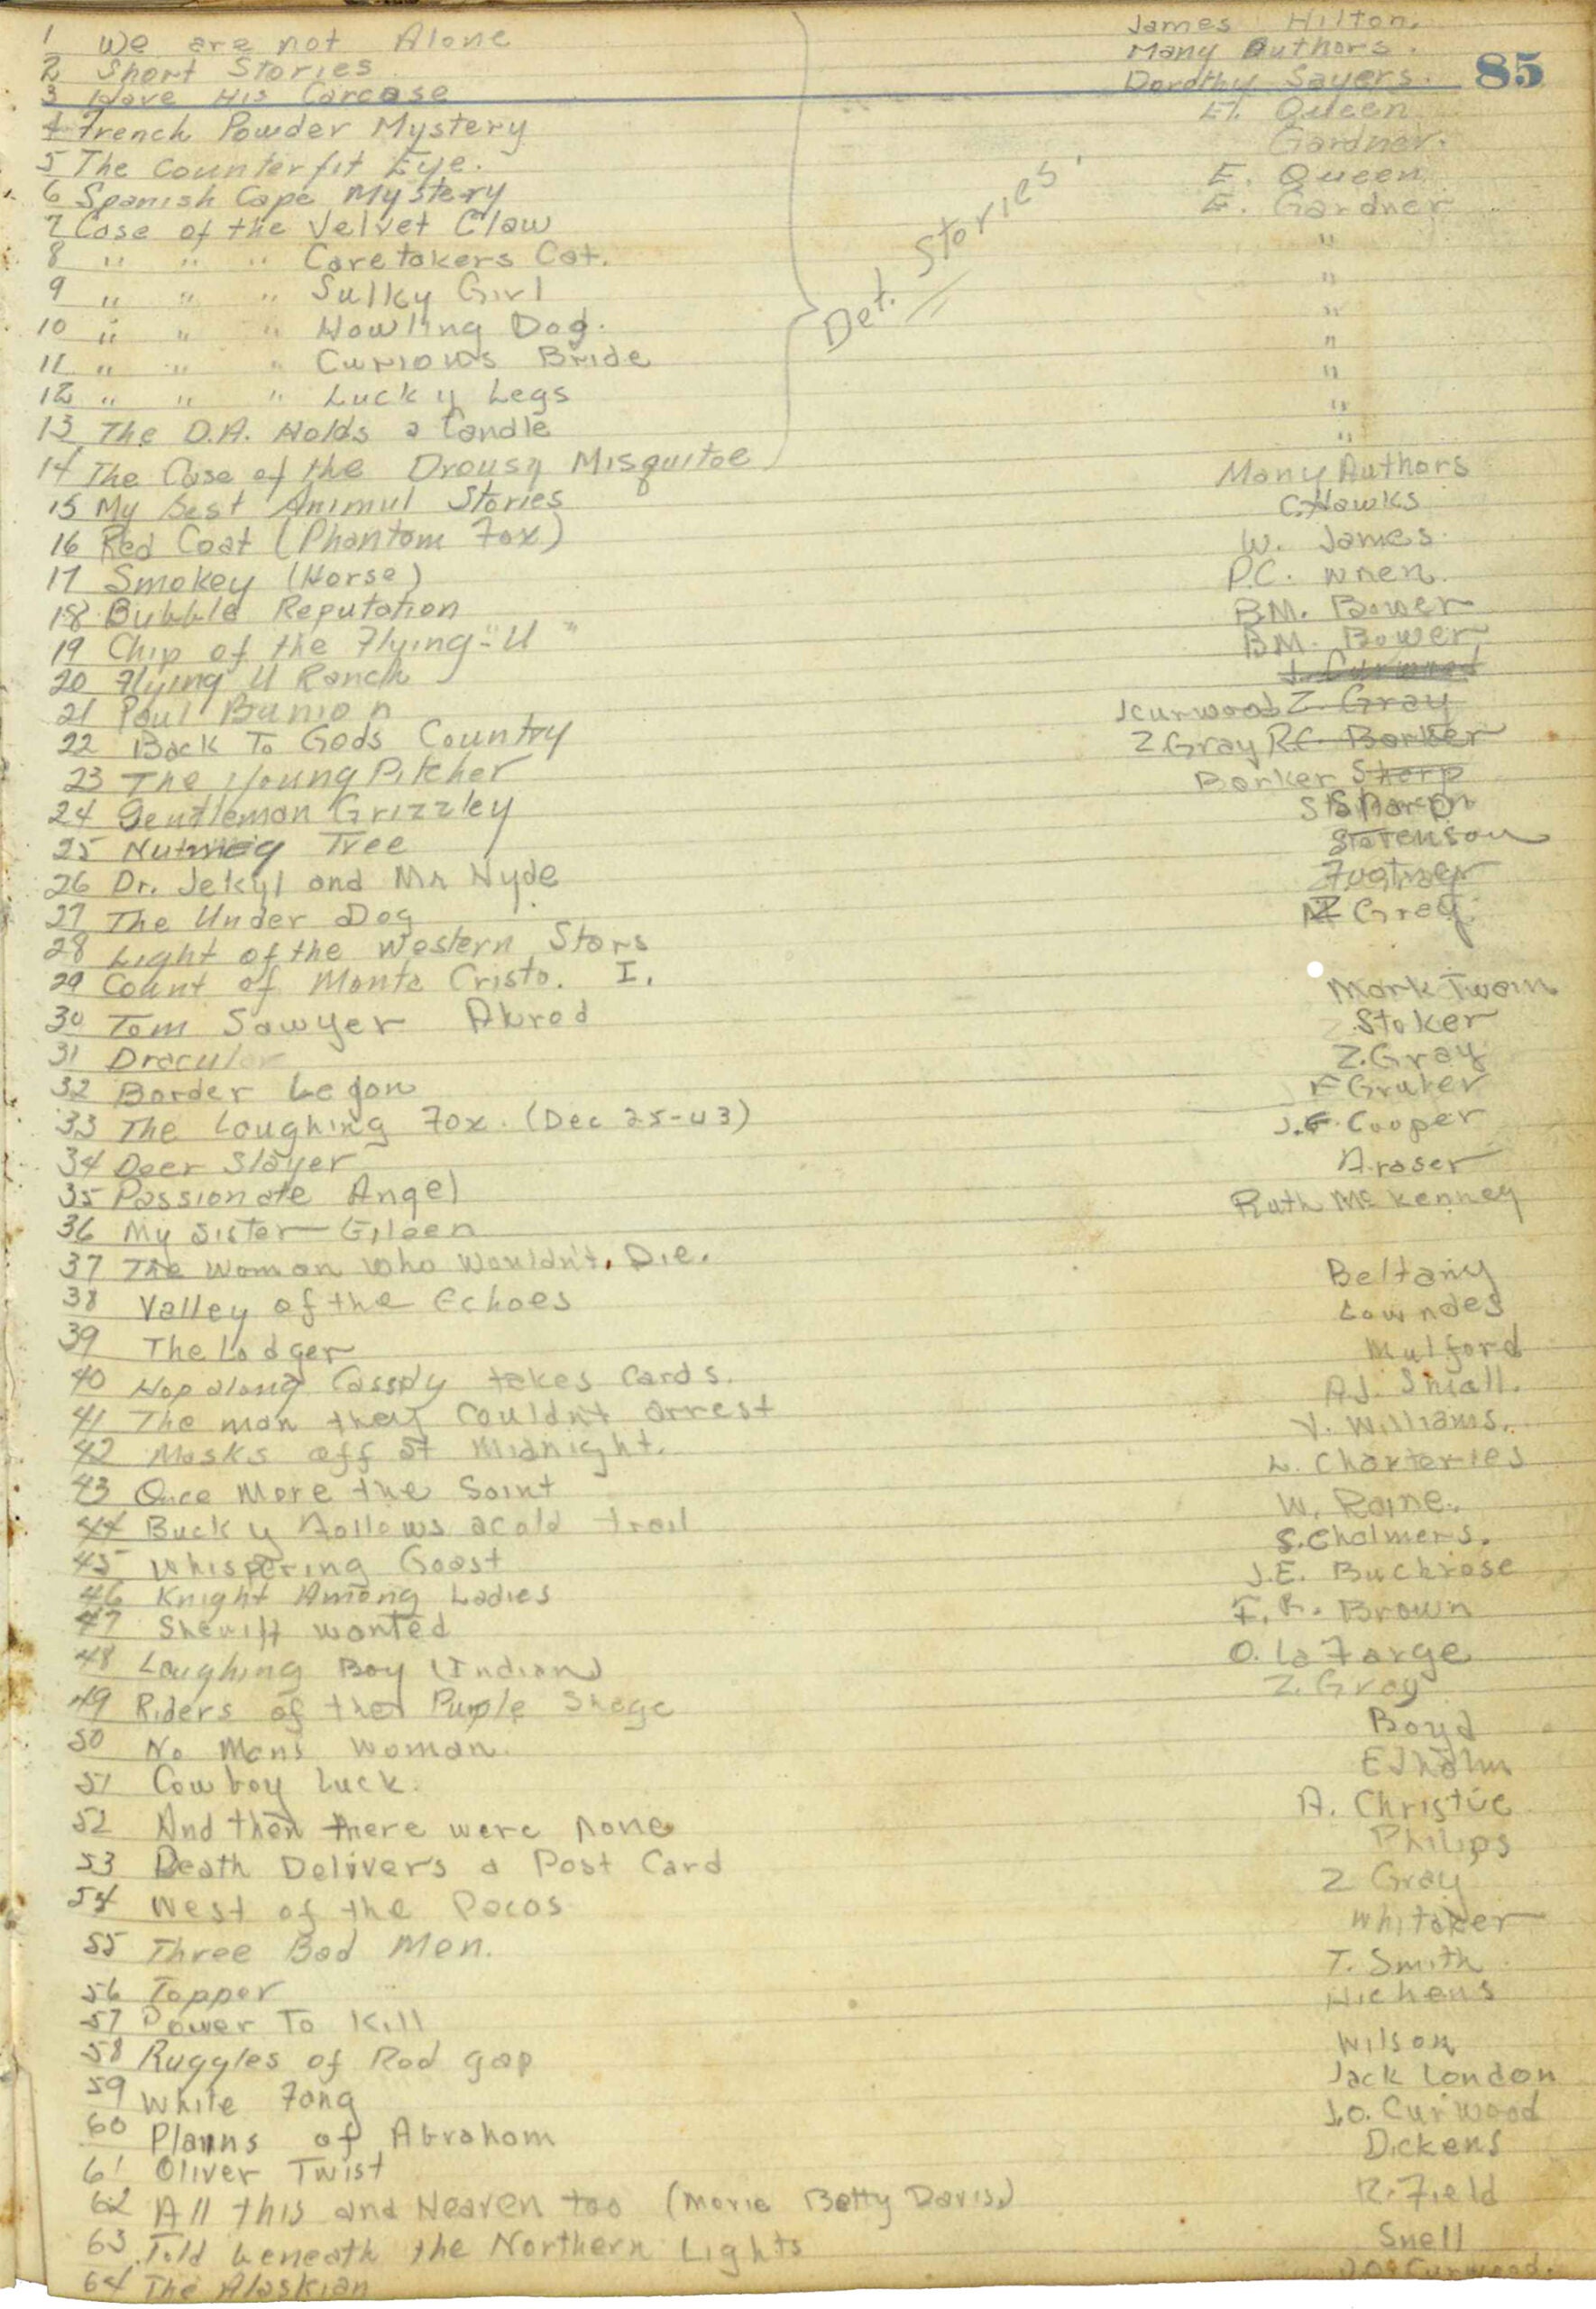 1 We are not Alone James Hilton.
2 Short Stories Many Authors.
3 Have His Carcase Dorothy Sayers. 85
4 French Powder Mystery El. Queen
5 The Counterfit Eye. Gardner.
6 Spanish Cape Mystery E. Queen
7 Case of the Velvet Claw E. Gardner
8 " " " Caretakers Cat. "
9 " " " Sulky Girl "
10 " " " Howling Dog. "
11 " " " Curious Bride "
12 " " " Lucky Legs "
13 The D.A. Holds a Candle "
14 The Case of the Drousy Misquitoe "
Det. Stories.
15 My Best Animul Stories Many Authors
16 Red Coat (Phantom Fox) C. Hawks
17 Smokey (Horse) W. James
18 Bubble Reputation P.C. Wren
19 Chip of the Flying "U" B.M. Bower
20 Flying U Ranch B.M. Bower
21 Paul Bunion J. Curwood
22 Back To Gods Country J Curwood Z. Gray
23 The Young Pitcher Z Gray R.C. Barker
24 Gentleman Grizzley Barker Sharp
25 Nutmeg Tree Sharp
26 Dr. Jekyl and Mr Hyde Stevenson
27 The Under Dog Footner
28 Light of the Western Stars Z Grey
29 Count of Monte Cristo. I.
30 Tom Sawyer Abrod Mark Twain
31 Dracular Stoker
32 Border Legon Z. Gray
33 The Laughing Fox. (Dec 25-43) F Gruber
34 Deer Slayer J.F. Cooper
35 Passionate Angel Fraser
36 My Sister Eileen Ruth McKenney
37 The Woman Who Wouldn't. Die.
38 Valley of the Echoes Beltany
39 The Lodger Lowndes
40 Hopalong Cassdy takes Cards. Mulford
41 The man they couldn't arrest A.J. Small.
42 Masks off at Midnight. V. Williams.
43 Once More the Saint L. Charteries
44 Bucky follows a cold trail W. Raine.
45 Whispering Goast S. Chalmers.
46 Knight Among Ladies J.E. Buckrose
47 Sheriff wanted F. R. Brown
48 Laughing Boy (Indian) O. La Farge
49 Riders of the Purple Shage Z. Gray
50 No Mans Woman. Boyd
51 Cowboy Luck. Edholm
52 And then there were none A. Christie
53 Death Delivers a Post Card Philips
54 West of the Pecos Z Gray
55 Three Bad Men. Whitaker
56 Topper T. Smith
57 Power To Kill Hichens
58 Ruggles of Rod gap Wilson
59 White Fang Jack London
60 Planns of Abraham J.O. Curwood
61 Oliver Twist Dickens
62 All this and Heaven too (Movie Betty Davis) R. Field
63 Told beneath the Northern Lights Snell
64 The Alaskian J.O. Curwood.